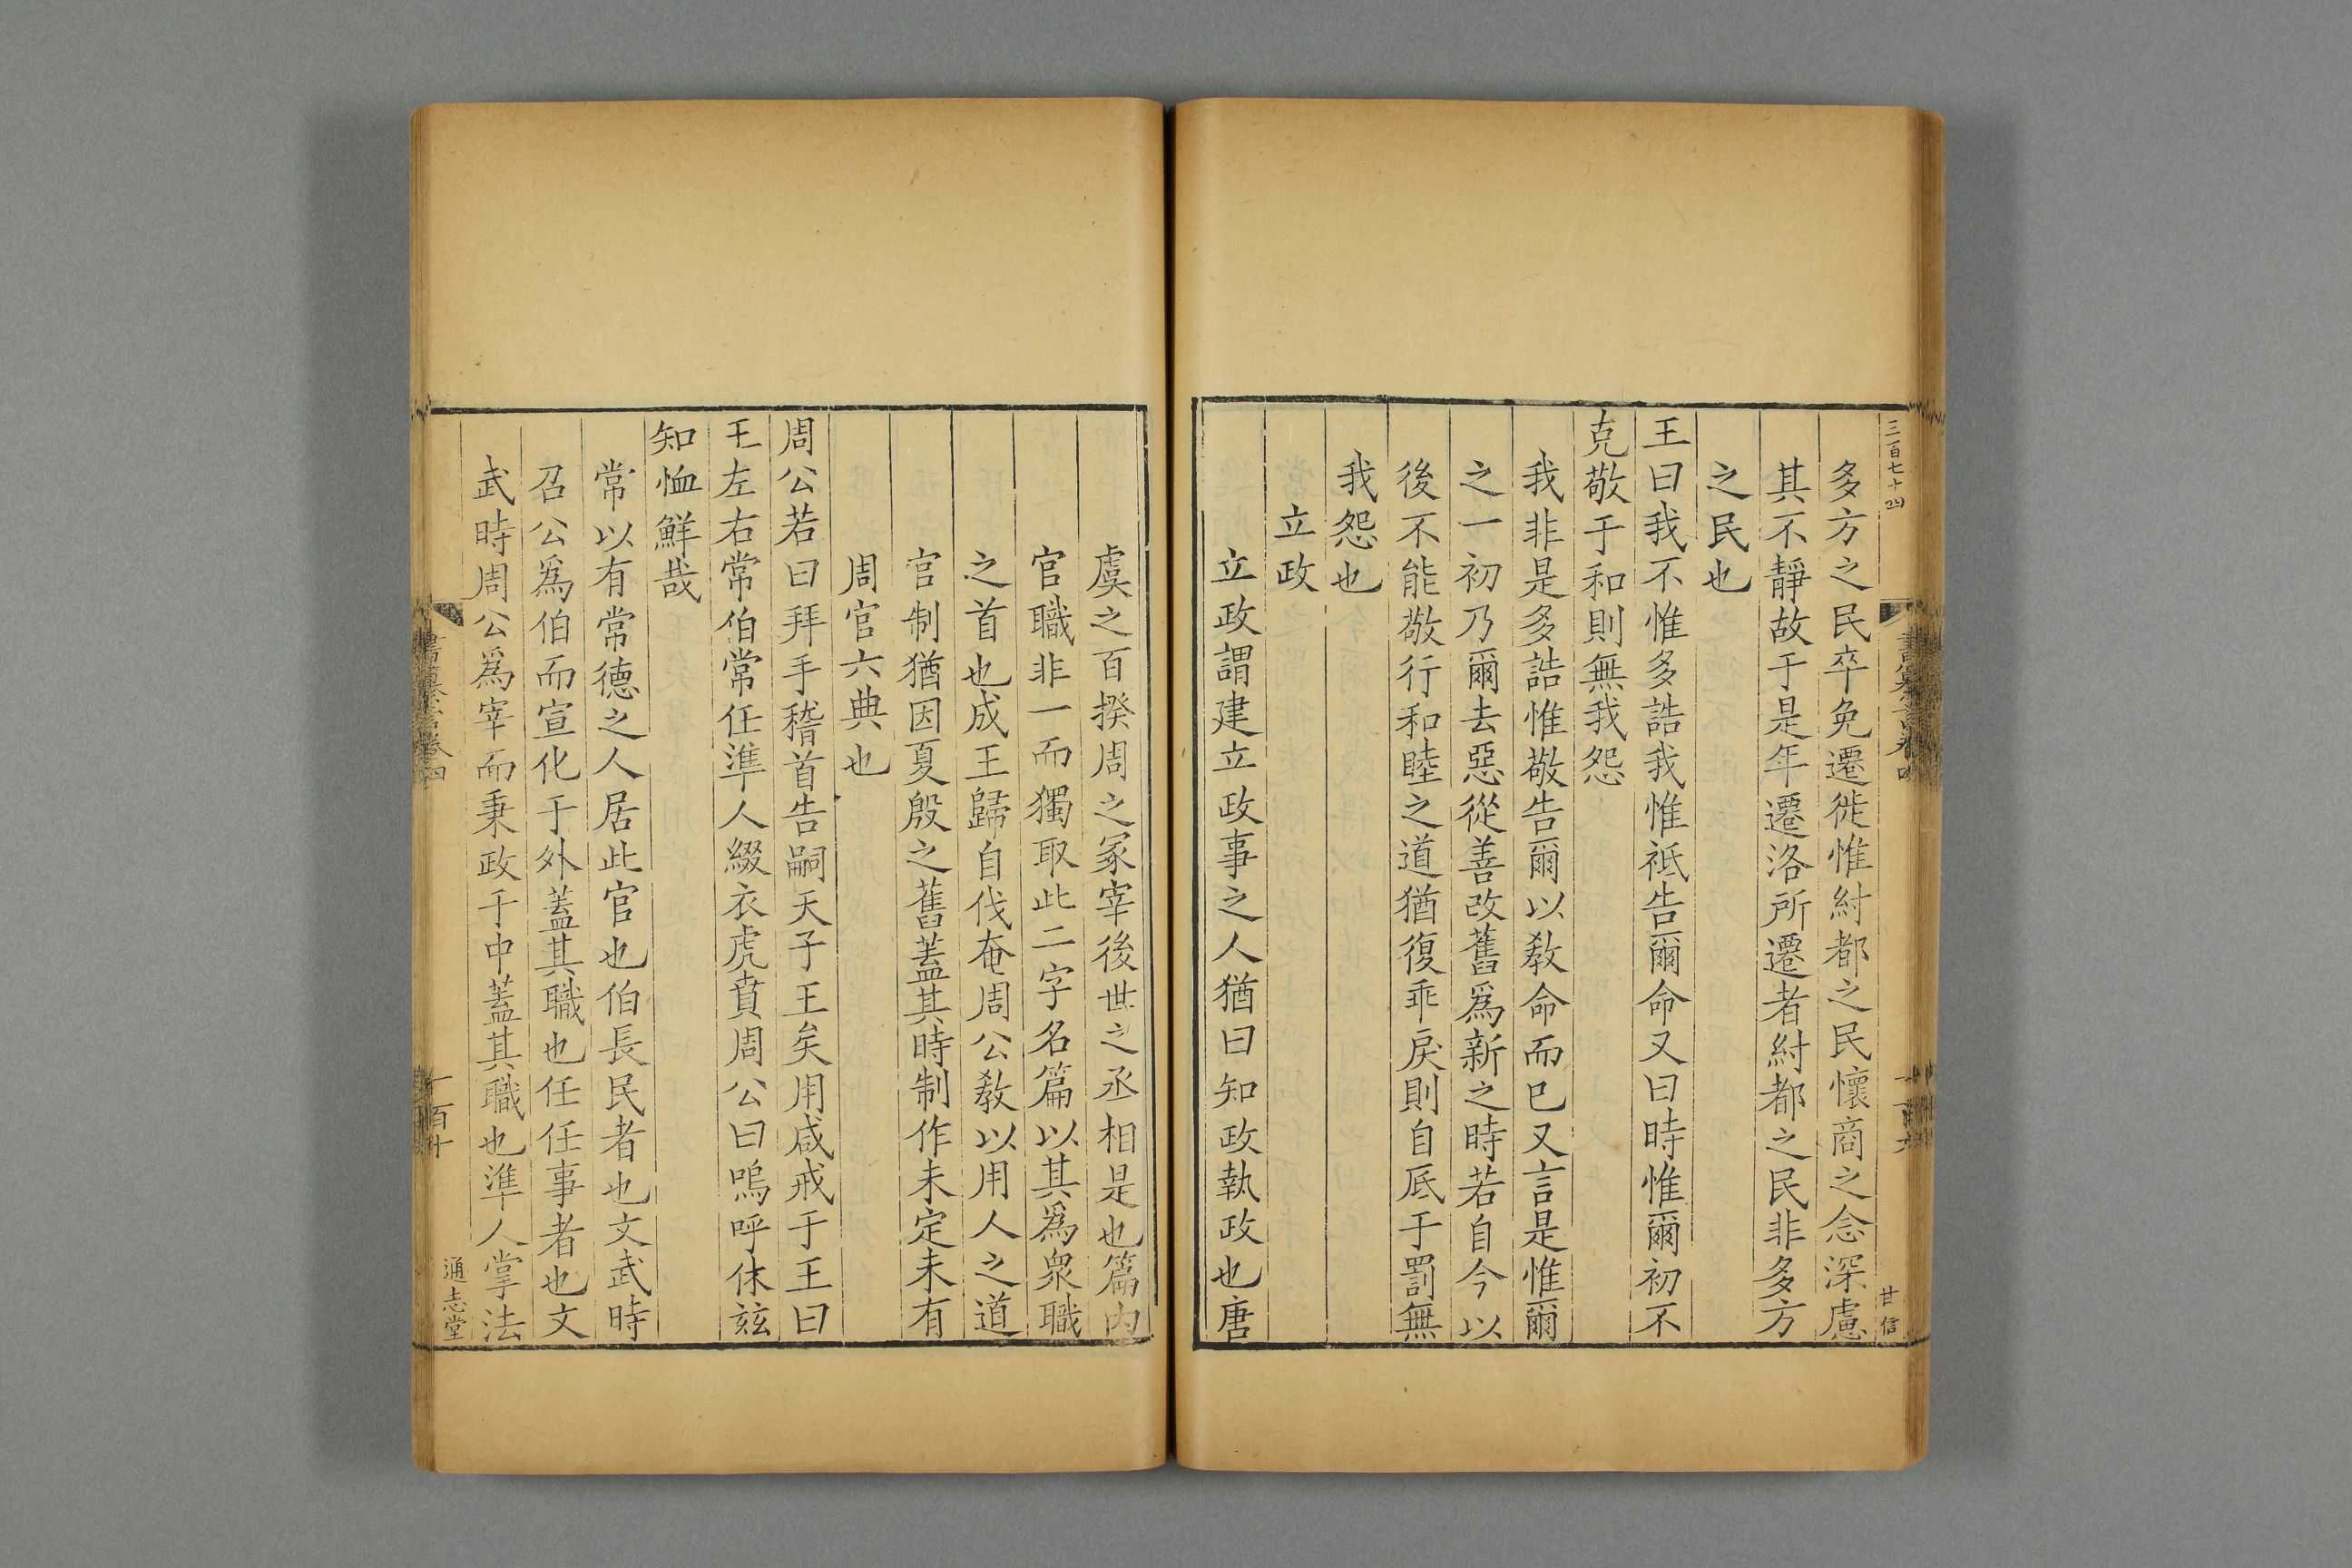 三百七十四
多方之民卒免遷徙惟紂都之民懷商之念深慮
其不靜故于是年遷洛所遷者紂都之民非多方
之民也
王曰我不惟多誥我惟祗告爾命又曰時惟爾初不
克敬于和則無我怨
我非是多誥惟敬告爾以敎命而巳又言是惟爾
之一初乃爾去惡從善改舊爲新之時若自今以
後不能敬行和睦之道猶復乖戾則自厎于罰無
我怨也
立政
立政謂建立政事之人猶曰知政執政也唐
甘信
虞之百揆周之冢宰後世之丞相是也篇内
官職非一而獨取此二字名篇以其爲衆職
之首也成王歸自伐奄周公敎以用人之道
官制猶因夏殷之舊蓋其時制作未定未有
周官六典也
周公若曰拜手稽首告嗣天子王矣用咸戒于王曰
王左右常伯常任準人綴衣虎賁周公曰嗚呼休玆
知恤鮮哉
常以有常德之人居此官也伯長民者也文武時
召公爲伯而宣化于外蓋其職也任任事者也文
武時周公爲宰而秉政于中蓋其職也準人掌法
通志堂